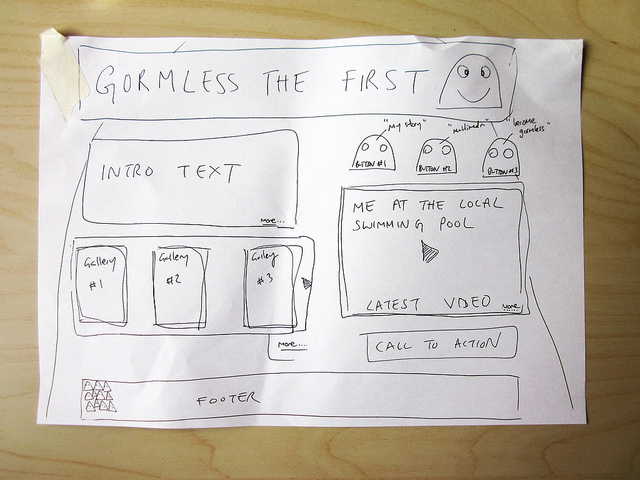 GORMLESS THE FIRST
"My story"
"multimedia"
"become
gormless"
BUTTON #1
BUTTON #2
BUTTON #3
INTRO TEXT
More...
ME AT THE LOCAL
SWIMMING POOL
LATEST VIDEO
More
Gallery
#1
Gallery
#2
Gallery
#3
More....
CALL TO ACTION
FOOTER